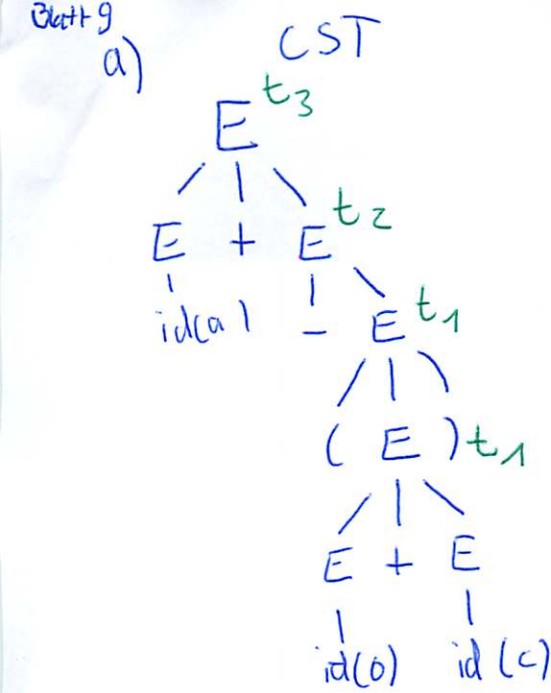 Blatt 9
a) CST
E t3
E + E t2
id(a) - E t1
( E ) t1
E + E
id(b) id(c)